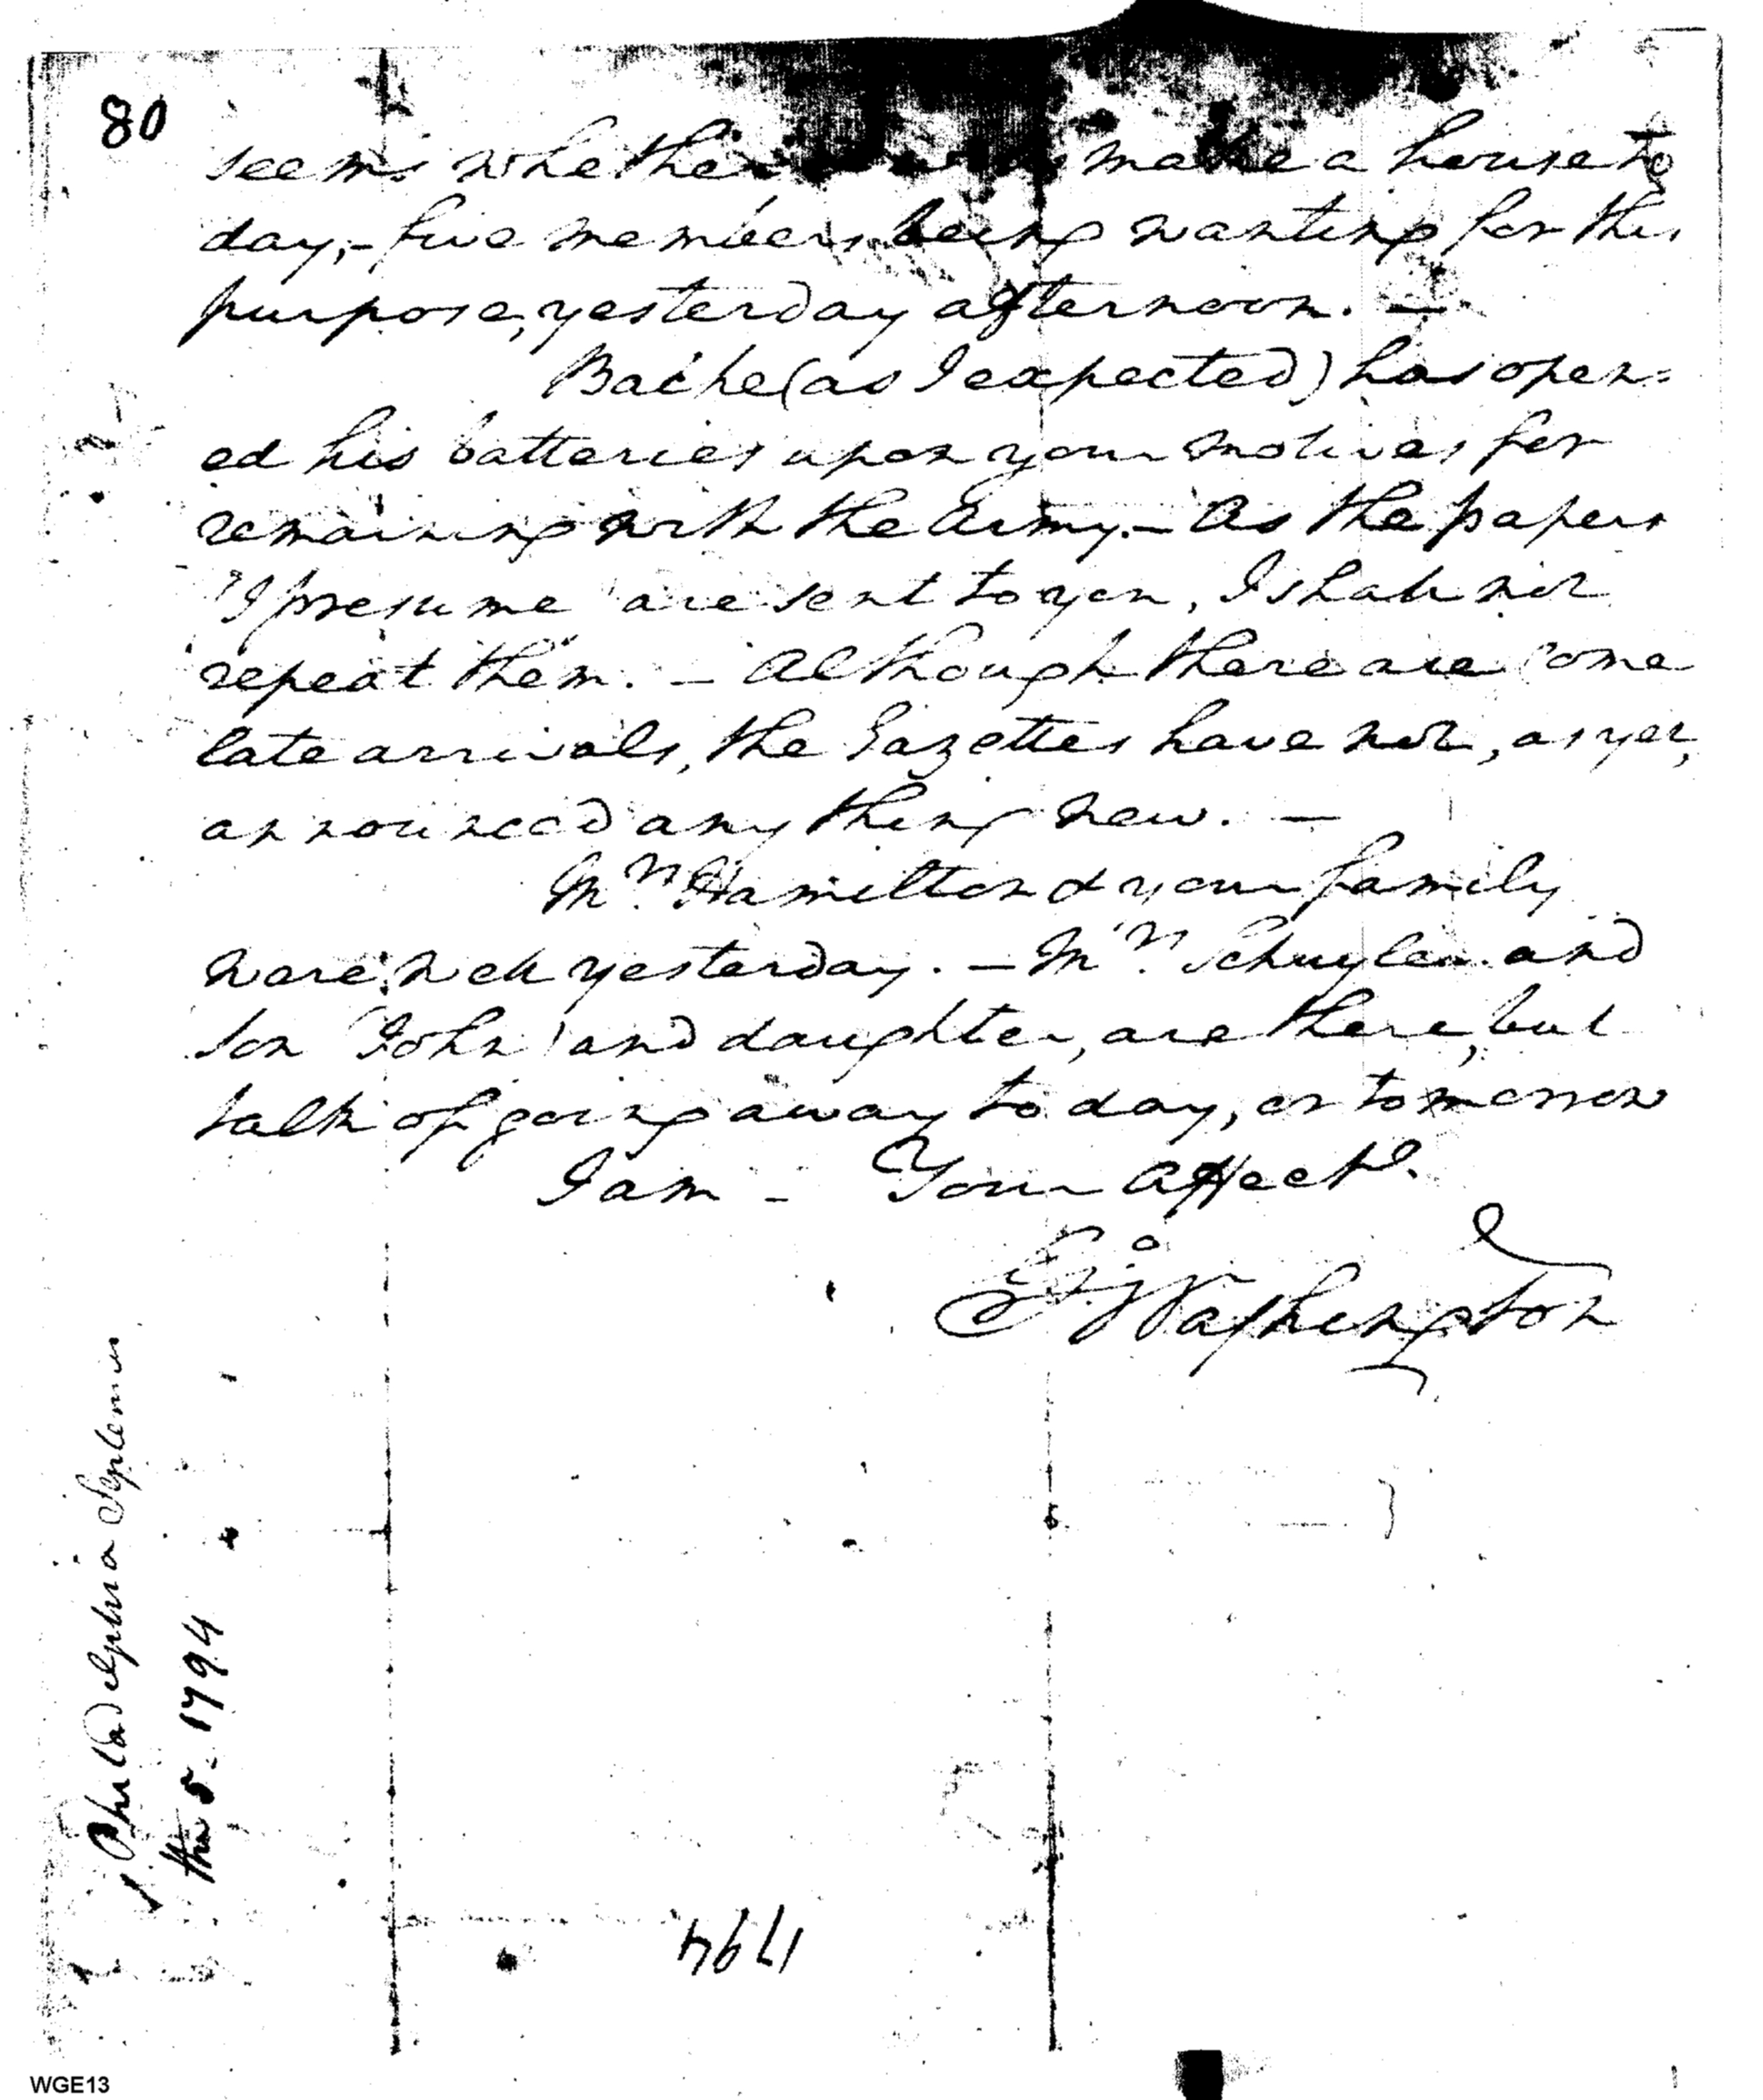 80
seems whether make a house to
day;–five members being wanting for this
purpose, yesterday afternoon. –
Bache (as I expected) has open-
ed his batteries upon your motives for
remaining with the Army.– As the papers
I presume are sent to you, I shall not
repeat them. – Although there are some
late arrivals, the Gazettes have not, as yet,
announced any thing new. –
Mrs. Hamilton & your family
were well yesterday. – Mrs. Schuyler and
son John and daughter, are there, but
talk of going away today, or tomorrow
I am – Your Affecte.
Go: Washington
Philadelphia
the 5. 1794
1794
WGE13